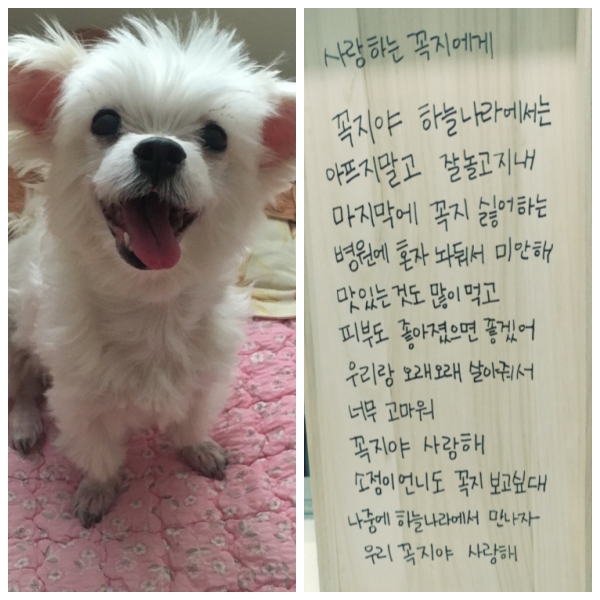 사랑하는 꼭지에게
꼭지야 하늘나라에서는
아프지말고 잘놀고지내
마지막에 꼭지 싫어하는
병원에 혼자 놔둬서 미안해
맛있는것도 많이 먹고
피부도 좋아졌으면 좋겠어
우리랑 오래오래 살아줘서
너무 고마워
꼭지야 사랑해
소정이언니도 꼭지 보고싶대
나중에 하늘나라에서 만나자
우리 꼭지야 사랑해